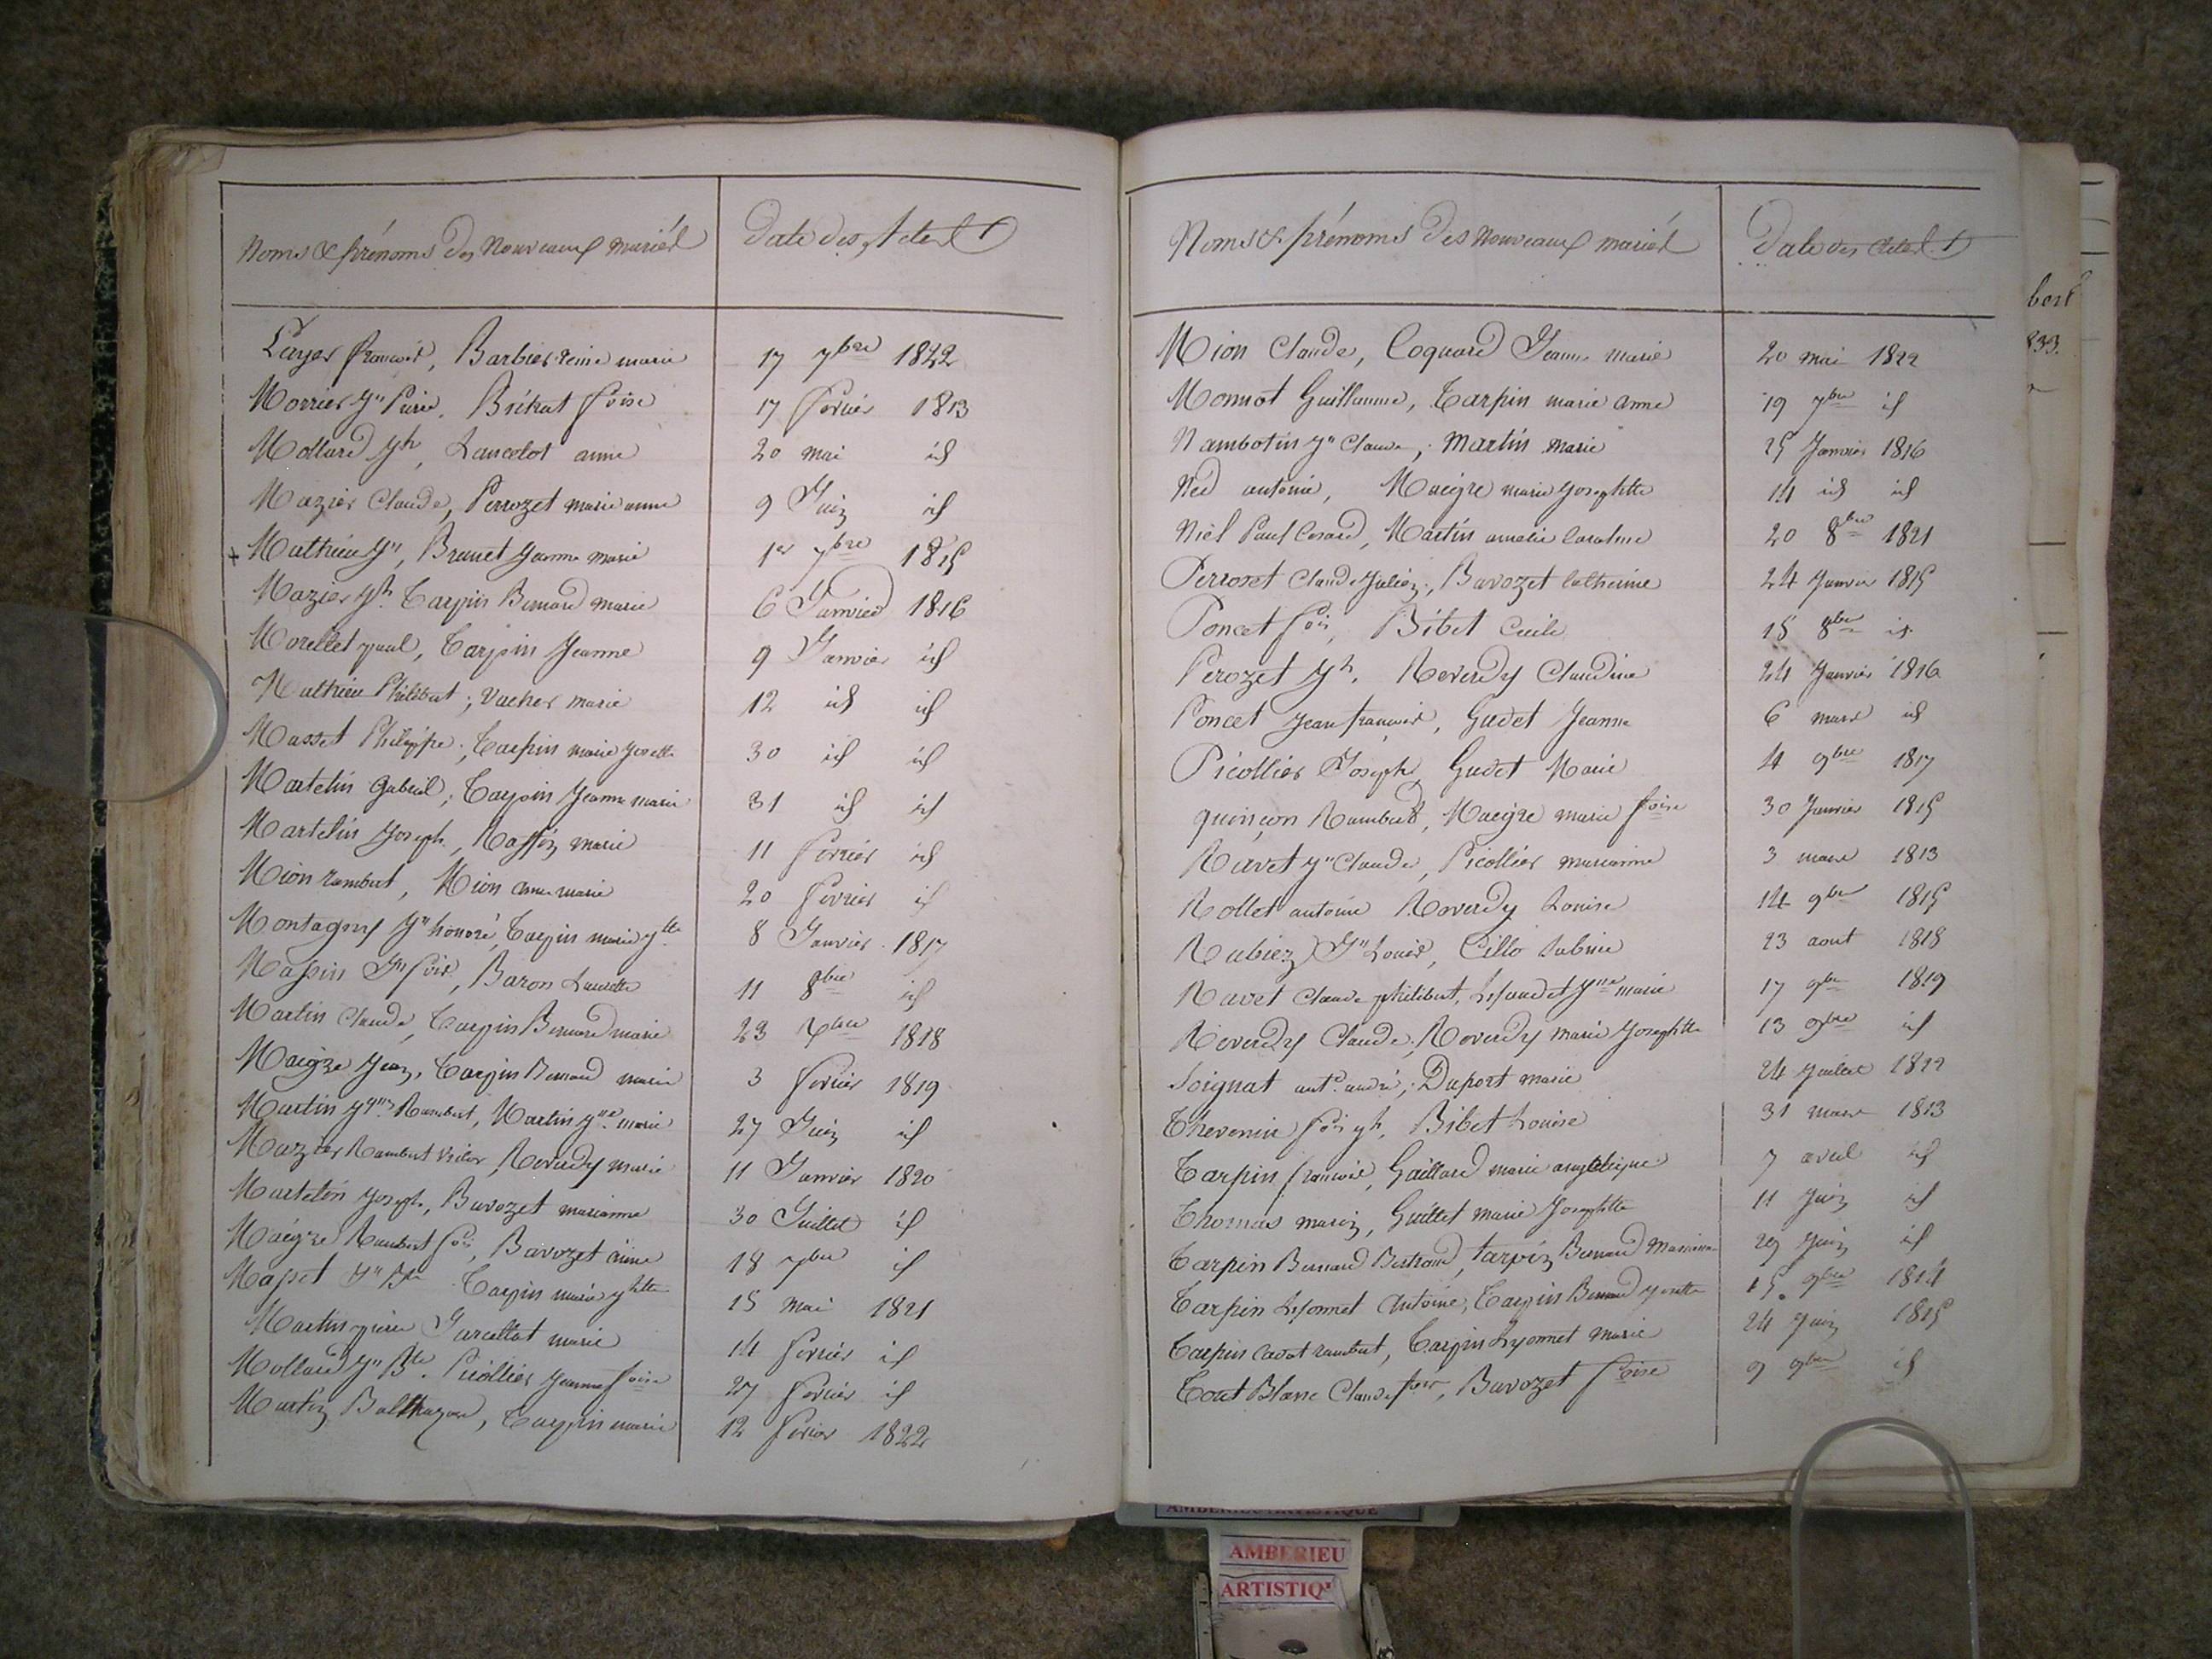 Noms & prénoms des Nouveaux mariés
Date des Actes
Layer francois, Barbier reine marie 17 7bre 1822
Morrier Jn Pierre, Brétrat foise 17 fevrier 1813
Mollard Jh, Lancelot anne 20 mai id
Mazier Claude, Perrozet marie anne 9 Juin id
+ Mathieu Jn, Brunet Jeanne marie 1er 7bre 1815
Mazier Jh Tarpin Bernard marie 6 Janvier 1816
Morellet paul, Tarpin Jeanne 9 Janvier id
Mathieu Philibert; Vacher marie 12 id id
Masset Philippe; Tarpin marie Josette 30 id id
Martelin Gabriel; Tarpin Jeanne marie 31 id id
Martelin Joseph, marie 11 fevrier id
Mion rambert, Mion anne marie 20 fevrier id
Montagny Jn honoré, Tarpin marie Jtte 8 Janvier 1817
Massin Jn fois, Baron Laurette 11 8bre id
Martin Claude, Tarpin Bernard marie 23 Xbre 1818
Maigre Jean, Tarpin Bernard marie 3 fevrier 1819
Martin Rambert, Martin Jne marie 27 Juin id
Mazier Rambert victor, Reverdy marie 11 Janvier 1820
Martelin Joseph, Bavozet marianne 30 Juillet id
Maigre Rambert fois, Bavozet anne 18 7bre id
Masset Jn Bte Tarpin marie Jhtte 15 mai 1821
Martin pierre Jarcellat marie 14 fevrier id
Mollard Jn Bte. Picollier Jeanne foise 27 fevrier id
Martin Balthazare, Tarpin marie 12 fevrier 1822
Noms & prénoms des nouveaux mariés
Date des Actes
Mion Claude, Coquard Jeanne marie 20 mai 1822
Monnot Guillaume, Tarpin marie anne 19 7bre id
Nambotin Jn Claude, Martin marie 25 Janvier 1816
Ned antoine, Maigre marie Josephtte 14 id id
Niel Paul Cesard, Martin amelie Caroline 20 8bre 1821
Perroset Claude Julien, Bavozet Catherine 24 Janvier 1815
Poncet fois, Bibet Cecile 15 8bre id
Perozet Jh, Reverdy Claudine 24 Janvier 1816
Poncet Jean francois, Gudet Jeanne 6 mars id
Picollier Joseph, Gudet Marie 4 9bre 1817
quinson Rambert, Maigre marie foise 30 Janvier 1815
Ravet Jn Claude, Picollier marianne 3 mars 1813
Rollet antoine Reverdy Louise 14 9bre 1815
Rubiez Jn Louis, Cillo Sabine 23 aout 1818
Ravet Claude philibert, Jne marie 17 9bre 1819
Reverdy Claude, Reverdy marie Josephtte 13 9bre id
Soignat ante andré; Duport marie 24 Juillet 1822
Thevenin fois Jh, Bibet Louise 31 mars 1813
Tarpin francois, Gaillard marie angelique 7 avril id
Thomas marin, Guillet marie Josephtte 11 Juin id
Tarpin Bernard Bertrand, tarpin Bernard Marianne 29 Juin id
Tarpin Lyonnet Antoine, Tarpin Bernard Josette 15 9bre 1814
Tarpin Cavot rambert, Tarpin Lyonnet marie 24 Juin 1815
Tout Blanc Claude fois, Bavozet foise 9 9bre id
bert
833.
AMBERIEU ARTISTIQUE
AMBERIEU
ARTISTIQU